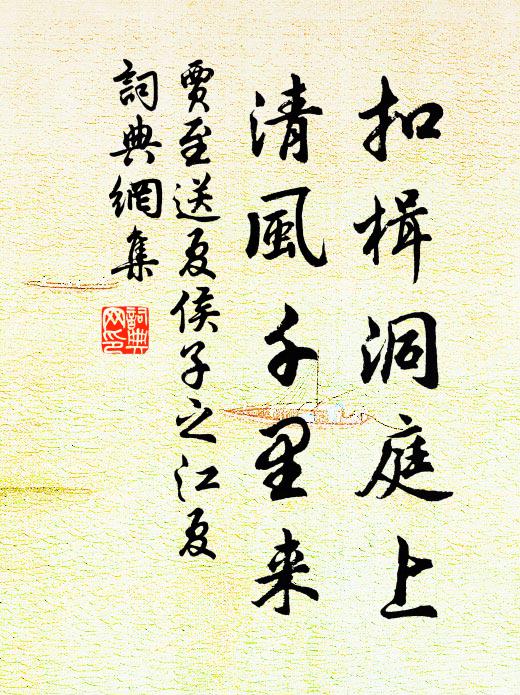 扣楫洞庭上
清風千里来
賈至送夏侯子之江夏
詞典網集
詞典
网印